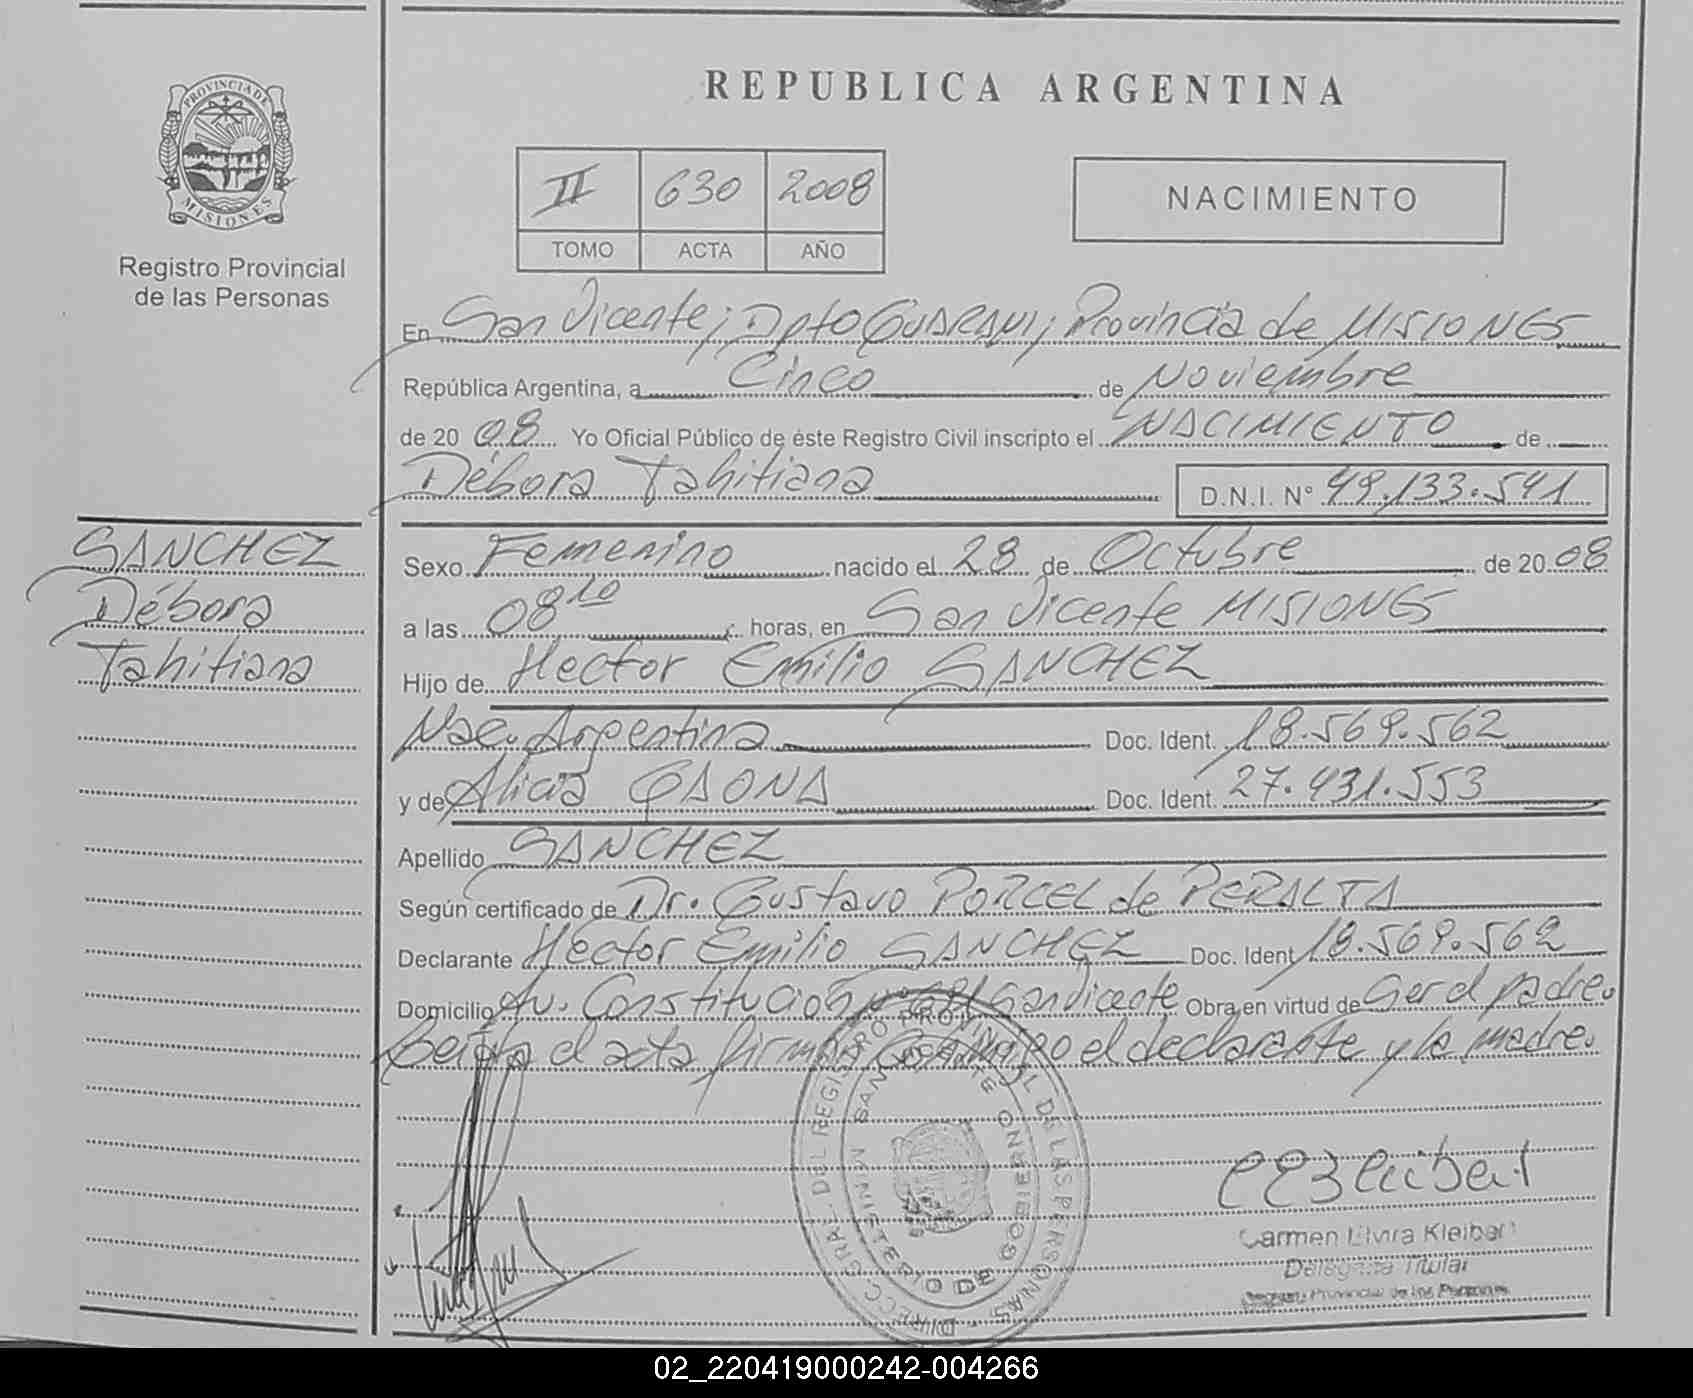 REPUBLICA ARGENTINA
PROVINCIA DE
MISIONES
Registro Provincial
de las Personas
II 630 2008
TOMO ACTA AÑO
NACIMIENTO
En San Vicente; Dpto GUARANI; Provincia de MISIONES
República Argentina, a Cinco de Noviembre
de 20 08 Yo Oficial Público de éste Registro Civil inscripto el NACIMIENTO de
Débora Tahitiana D.N.I. N° 49.133.541
SANCHEZ
Débora
Tahitiana
Sexo Femenino nacido el 28 de Octubre de 20 08
a las 08 10 horas, en San Vicente MISIONES
Hijo de Hector Emilio SANCHEZ
Nac. Argentina Doc. Ident. 18.569.562
y de Alicia GAONA Doc. Ident. 27.431.553
Apellido SANCHEZ
Según certificado de Dr. Gustavo PORCEL de PERALTA
Declarante Hector Emilio SANCHEZ Doc. Ident 18.569.562
Domicilio Av. Constitución San Vicente Obra en virtud de Ser el padre.
Leida el acta firman conmigo el declarante y la madre.
DIRECC. GRAL. DEL REGISTRO PROVINCIAL DE LAS PERSONAS
MINISTERIO DE GOBIERNO
SAN VICENTE
Carmen Elvira Kleibert
Delegada Titular
Registro Provincial de las Personas
02_220419000242-004266